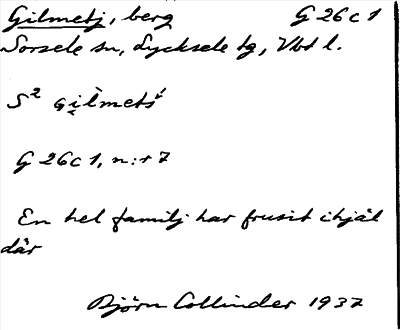 Gilmetj, berg G 26 c 1
Sorsele sn, Lycksele tg, Vbt l.
S² gi̮lmetś
G 26 c 1, n:r 7
En hel familj har frusit ihjäl
där
Björn Collinder 1937